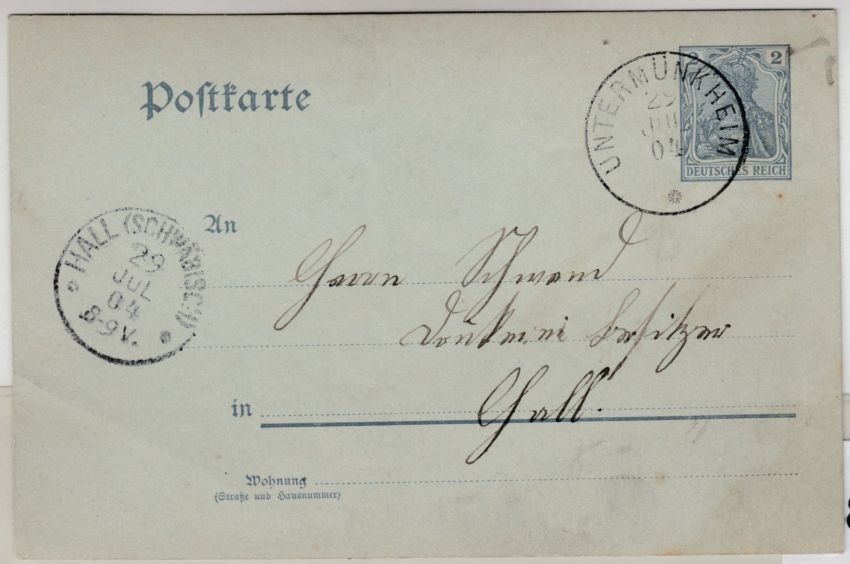 Postkarte
UNTERMÜNKHEIM
29
JUL
04
2
DEUTSCHES REICH
HALL (SCHWÄBISCH)
29
JUL
04
8-9V.
An
Herrn Schwend
Druckerei Besitzer
in Hall.
Wohnung
(Straße und Hausnummer)